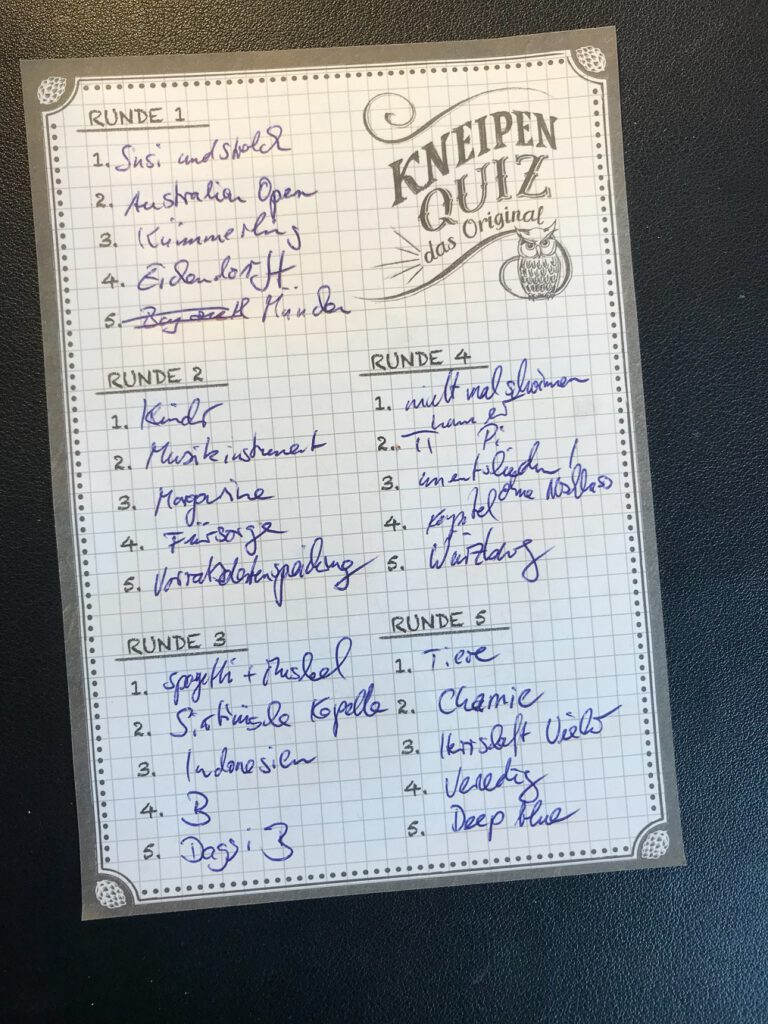 RUNDE 1
1. Susi und Strolch
2. Australian Open
3. Kümmerling
4. Eichendorff
5. Bayreuth München
KNEIPEN
QUIZ
das Original
RUNDE 2
1. Kinder
2. Musikinstrument
3. Margarine
4. Fürsorge
5. Vorratsdatenspeicherung
RUNDE 3
1. Spagetti + Muskel
2. Sixtinische Kapelle
3. Indonesien
4. B
5. Dagsi B
RUNDE 4
1. nicht mal
2. π Pi
3. unentschieden /
ohne
4. Kapitel
5. Würzburg
RUNDE 5
1. Tiere
2. Chemie
3. Herrschaft Vieler
4. Venedig
5. Deep blue